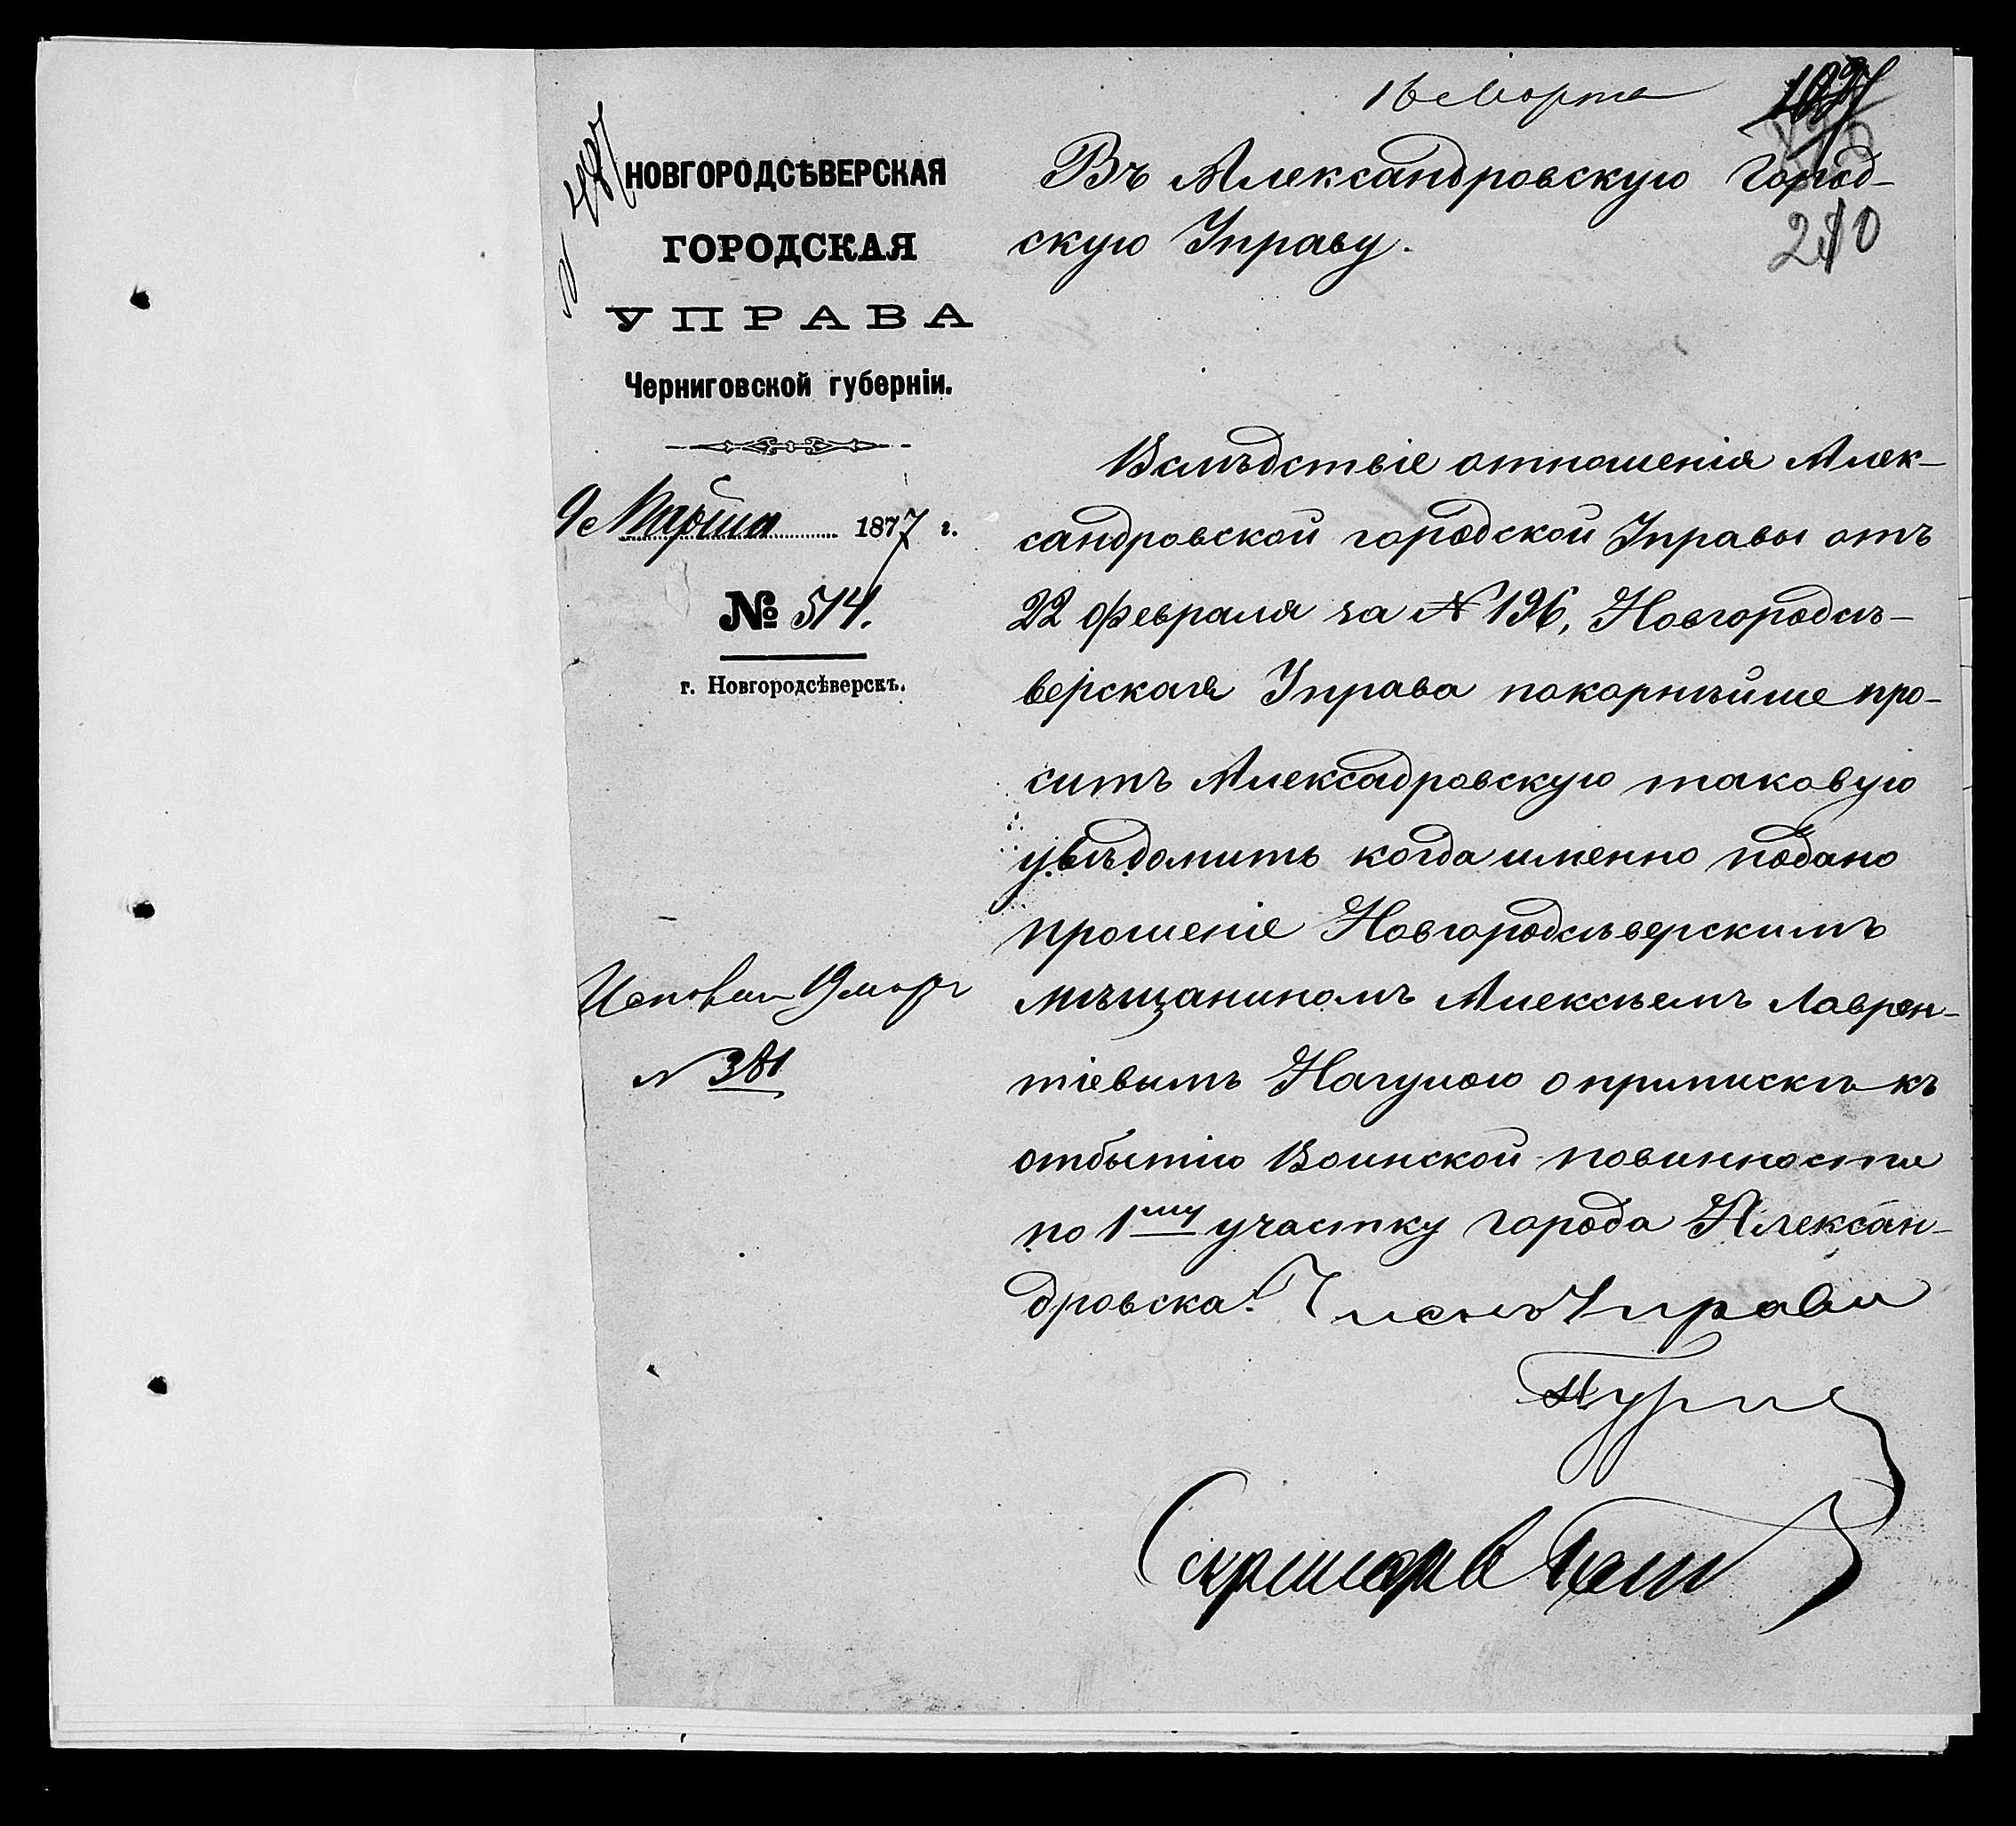 16 Марта
НОВГОРОДСѢВЕРСКАЯ
ГОРОДСКАЯ
УПРАВА
Черниговской губерніи.
9 Марта 1877 г.
№ 514.
г. Новгородсѣверскъ.
19 мар
N 381
210
Въ Александровскую Город-
скую Управу.
Вслѣдствіе отношенія Алек-
сандровской городской Управы отъ
22 февраля за N 196, Новгородсѣ-
верская Управа покорнѣйше про-
ситъ Алексадровскую таковую
увѣдомить когда именно подано
прошеніе Новгородсѣверскимъ
мѣщаниномъ Алексѣемъ Лаврен-
тіевымъ Нагулою о припискѣ къ
отбытію Воинской повинности
по 1му участку города Алексан-
дровска. Членъ Управы
Секретарь